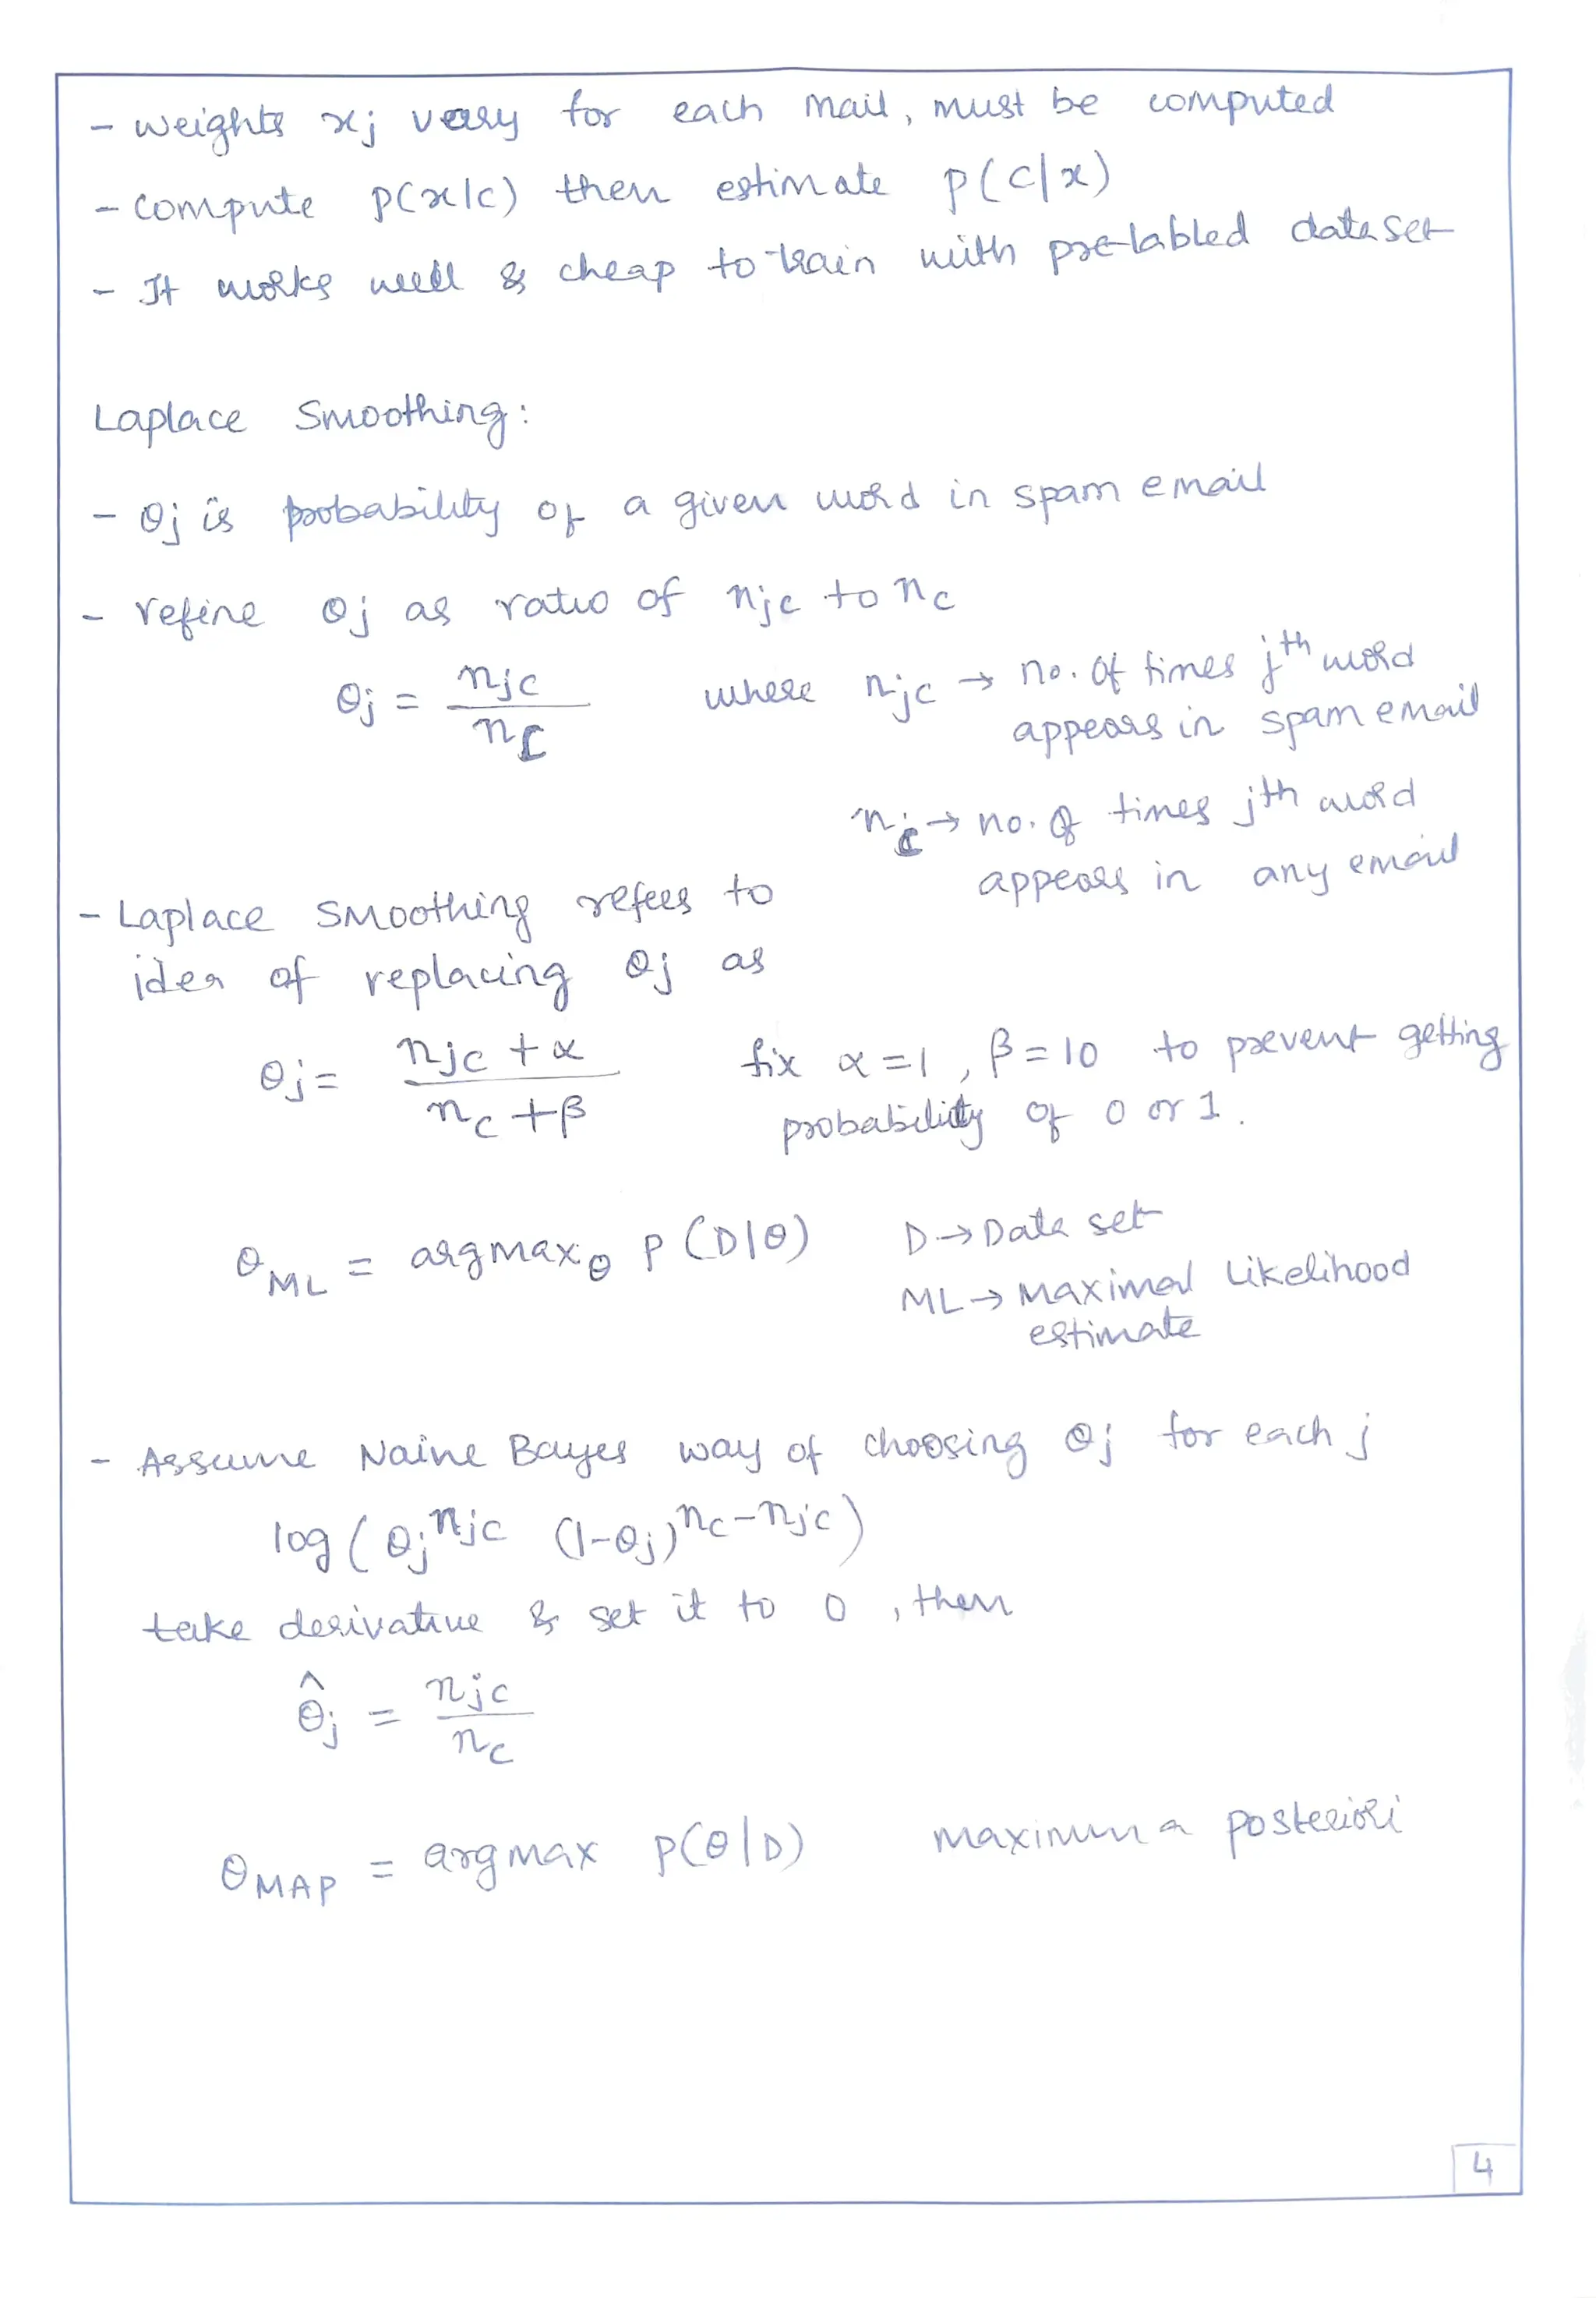 - weights xj vary for each mail, must be computed
- compute p(x|c) then estimate p(c|x)
- It works well & cheap to train with pre-labled dataset
Laplace Smoothing:
- θj is probability of a given word in spam email
- refine θj as ratio of njc to nc
θj = njc / nc where njc → no. of times jth word
appears in spam email
nc → no. of times jth word
appears in any email
- Laplace smoothing refers to
idea of replacing θj as
θj = njc + α / nc + β fix α = 1, β = 10 to prevent getting
probability of 0 or 1.
θML = argmaxθ p(D|θ) D → Data set
ML → Maximal Likelihood
estimate
- Assume Naive Bayes way of choosing θj for each j
log(θj^njc (1-θj)^nc-njc)
take derivative & set it to 0, then
θ̂j = njc / nc
θMAP = argmax p(θ|D) maximum a posteriori
4